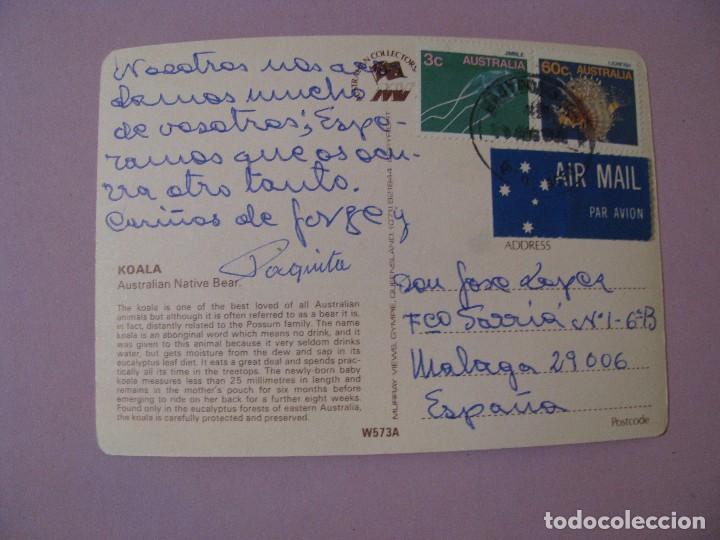 Nosotros nos acor
damos mucho
de vosotros, Espe-
ramos que os ocu-
rra otro tanto.
Cariños de Jorge y
Paquita
KOALA
Australian Native Bear.
The koala is one of the best loved of all Australian
animals but although it is often referred to as a bear it is,
in fact, distantly related to the Possum family. The name
koala is an aboriginal word which means no drink, and it
was given to this animal because it very seldom drinks
water, but gets moisture from the dew and sap in its
eucalyptus leaf diet. It eats a great deal and spends prac-
tically all its time in the treetops. The newly-born baby
koala measures less than 25 millimetres in length and
remains in the mother's pouch for six months before
emerging to ride on her back for a further eight weeks.
Found only in the eucalyptus forests of eastern Australia,
the koala is carefully protected and preserved.
W573A
AUSTRALIAN COLLECTORS
MURRAY VIEWS, GYMPIE, QUEENSLAND. (071) 821844 COPYRIGHT
JIMBLE
3c AUSTRALIA
LIONFISH
60c AUSTRALIA
AIR MAIL
PAR AVION
ADDRESS
Don Jose Lopez
Fco Sarriá Nº1-6ºB
Malaga 29006
España
Postcode
todocoleccion
todocoleccion.net